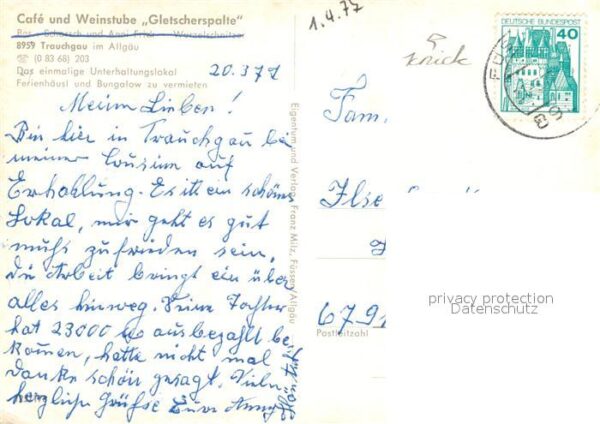 Café und Weinstube „Gletscherspalte"
Bes. Schorsch und Anni Erhart - Wurzelschnitzer
8959 Trauchgau im Allgäu
☎ (0 83 68) 203
Das einmalige Unterhaltungslokal
Ferienhäusl und Bungalow zu vermieten
20.3.77
Meine Lieben!
Bin hier in Trauchgau bei
meiner Cousine auf
Erhohlung. Es ist ein schönes
Lokal, mir geht es gut
muß zufrieden sein,
die Arbeit bringt ein über
alles hinweg. Seine Tochter
hat 23000 ausbezahlt be
komen, hatte nicht mal
Danke schön gesagt. Viele
herzliche Grüße Eure Anny
Eigentum und Verlag Franz Milz, Füssen/Allgäu
1.4.77
5
Knick
DEUTSCHE BUNDESPOST
40
Fam.
Ilse
679
Postleitzahl
privacy protection
Datenschutz